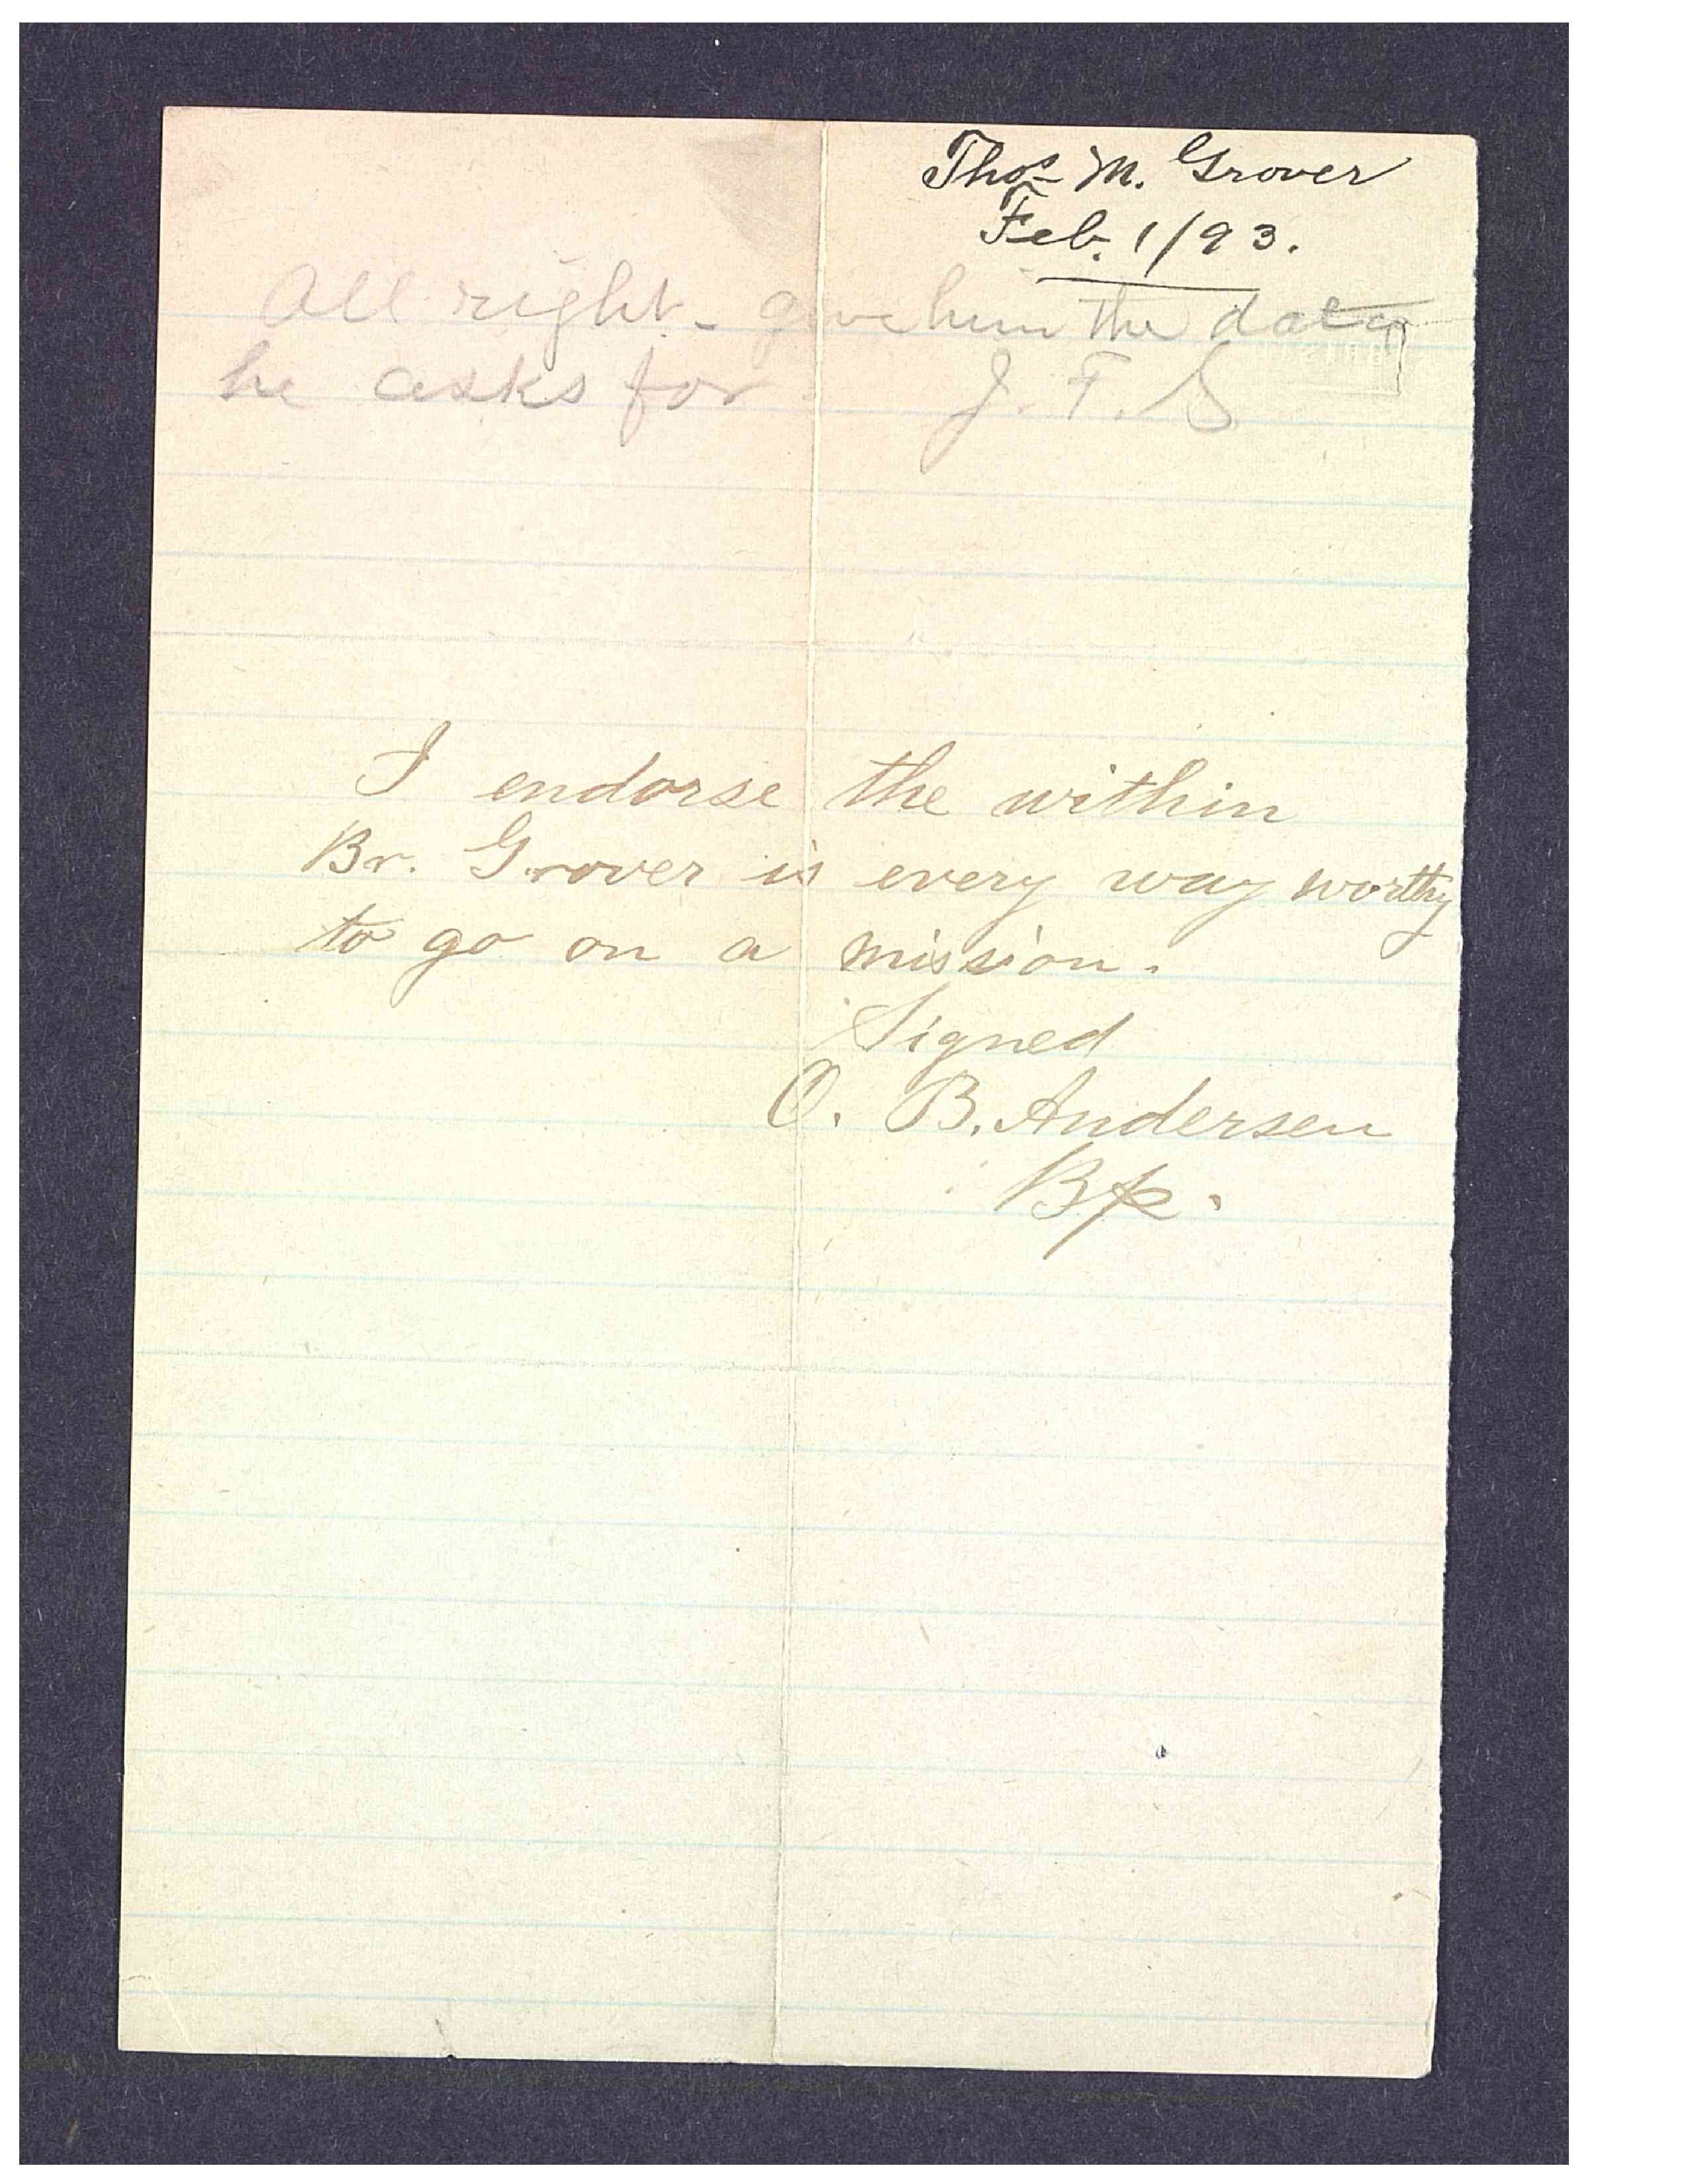 Thos. M. Grover
Feb. 1/93.
All right - give him the date
he asks for J. F. S
I endorse the within
Br. Grover is every way worthy
to go on a mission.
Signed
O. B. Andersen
Bp.